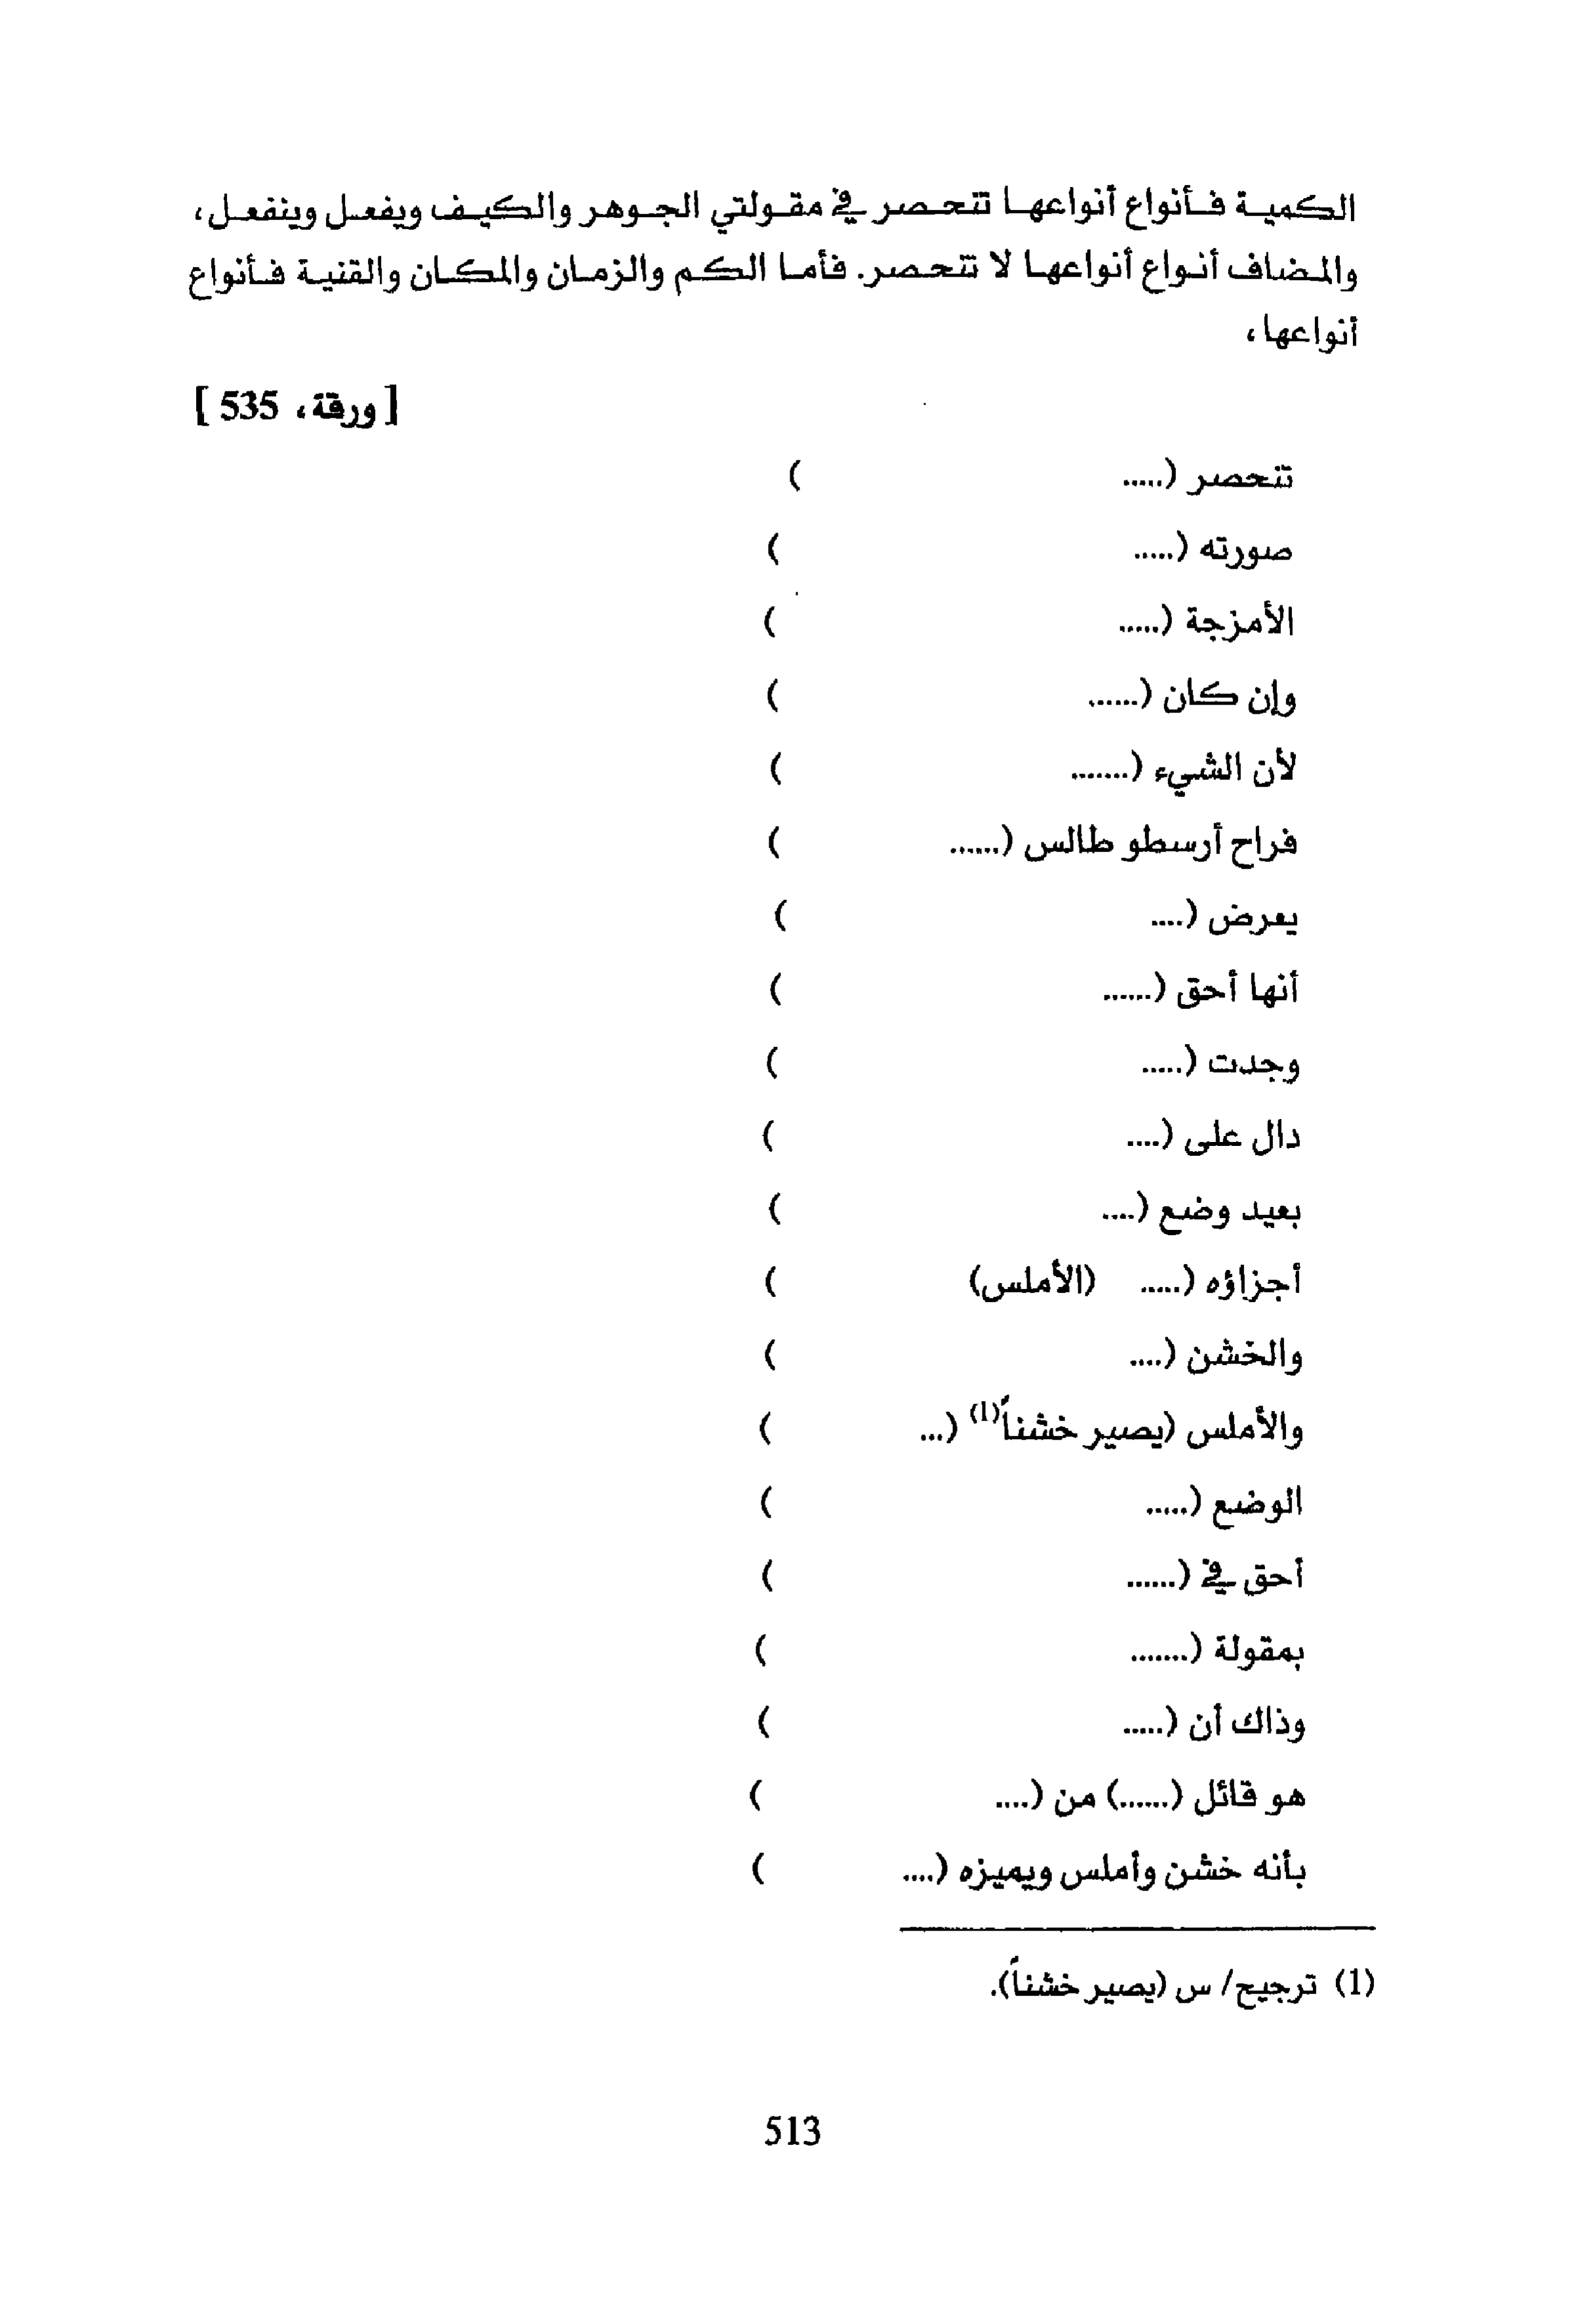 الكمية فأنواع أنواعها تنحصر في مقولتي الجوهر والكيف ويفعل وينفعل،
والمضاف أنواع أنواعها لا تنحصر. فأما الكم والزمان والمكان والقنية فأنواع
أنواعها،
[ورقة، 535 ]
تنحصر (..... )
صورته (..... )
الأمزجة (..... )
وإن كان (...... )
لأن الشيء (....... )
فراح أرسطو طالس (...... )
يعرض (.... )
أنها أحق (...... )
وجدت (..... )
دال على (.... )
بعيد وضع (.... )
أجزاؤه (..... (الأملس) )
والخشن (.... )
والأملس (يصير خشناً(1) (... )
الوضع (..... )
أحق في (...... )
بمقولة (....... )
وذاك أن (..... )
هو قائل (......) من (.... )
بأنه خشن وأملس ويميزه (.... )
(1) ترجيح/ س (يصير خشناً).
513